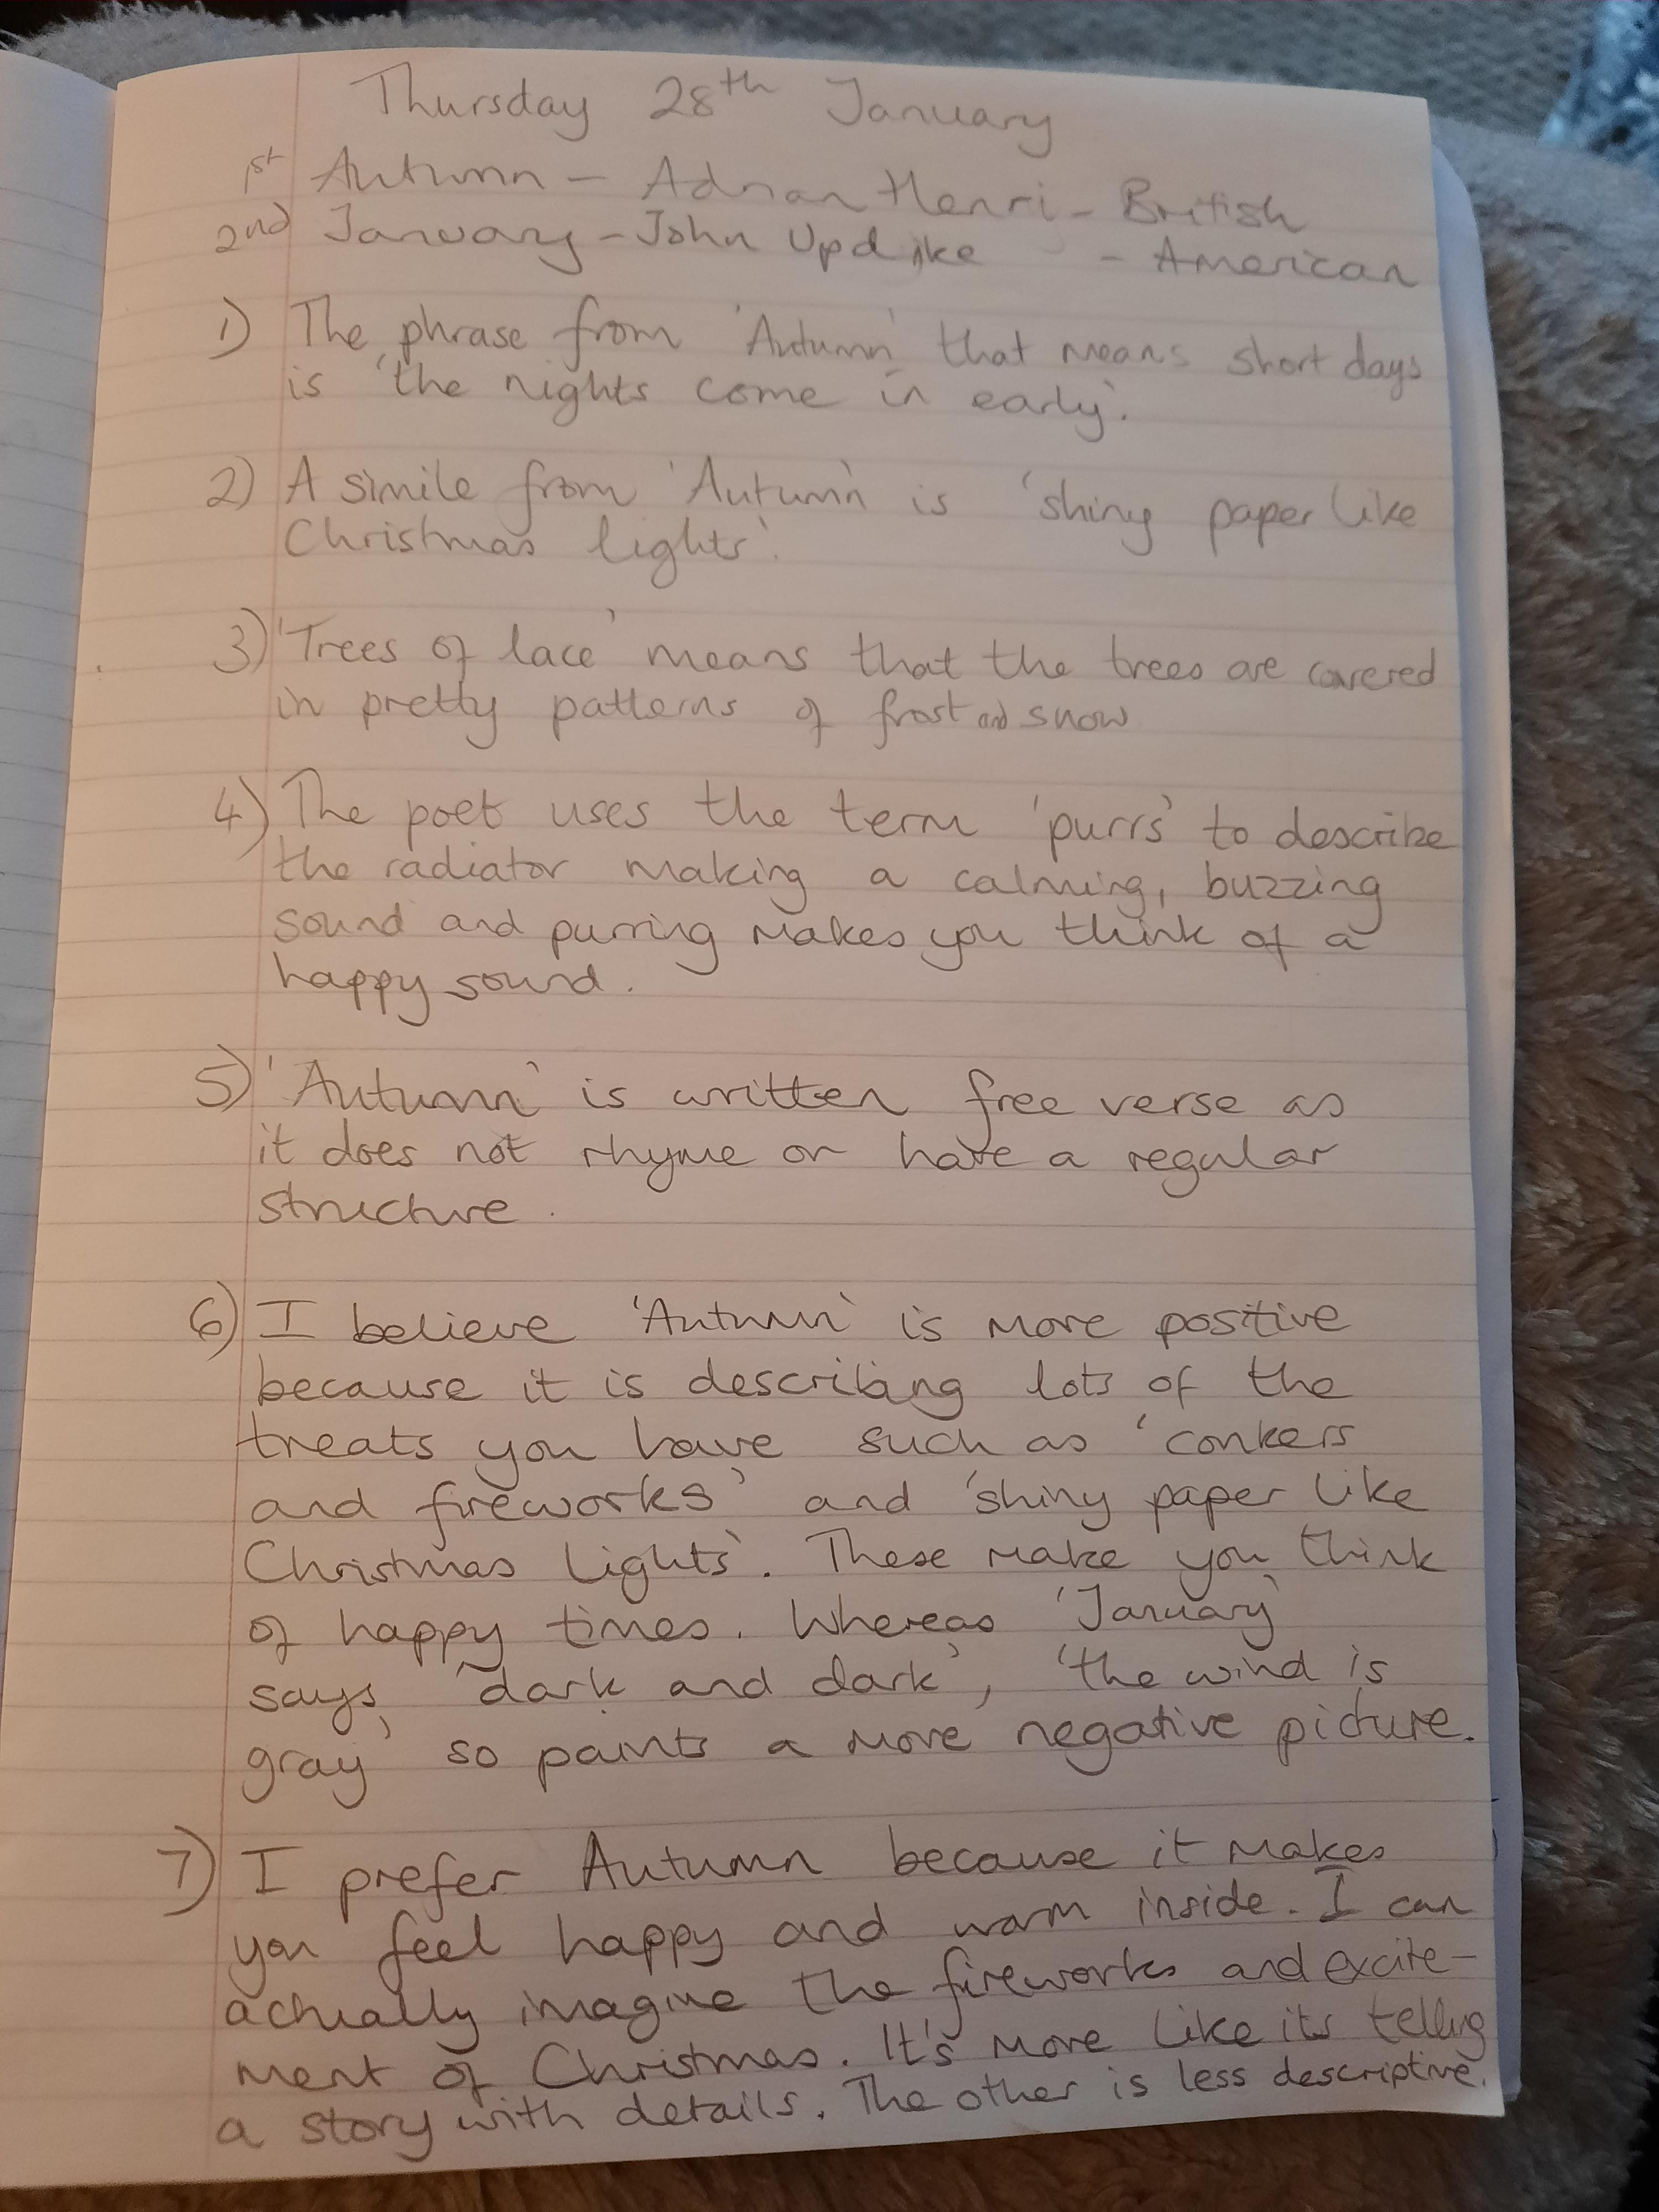 Thursday 28th January
1st Autumn - Adrian Henri - British
2nd January - John Updike - American
1) The phrase from 'Autumn' that means short days
is 'the nights come in early'.
2) A simile from 'Autumn' is 'shiny paper like
Christmas lights'.
3) 'Trees of lace' means that the trees are covered
in pretty patterns of frost and snow
4) The poet uses the term 'purrs' to describe
the radiator making a calming, buzzing
sound and purring makes you think of a
happy sound.
5) 'Autumn' is written free verse as
it does not rhyme or have a regular
structure.
6) I believe 'Autumn' is more positive
because it is describing lots of the
treats you have such as 'conkers
and fireworks' and 'shiny paper like
Christmas lights'. These make you think
of happy times. Whereas 'January'
says, 'dark and dark', 'the wind is
gray' so paints a more negative picture.
7) I prefer Autumn because it makes
you feel happy and warm inside. I can
actually imagine the fireworks and excite-
ment of Christmas. It's more like its telling
a story with details. The other is less descriptive.